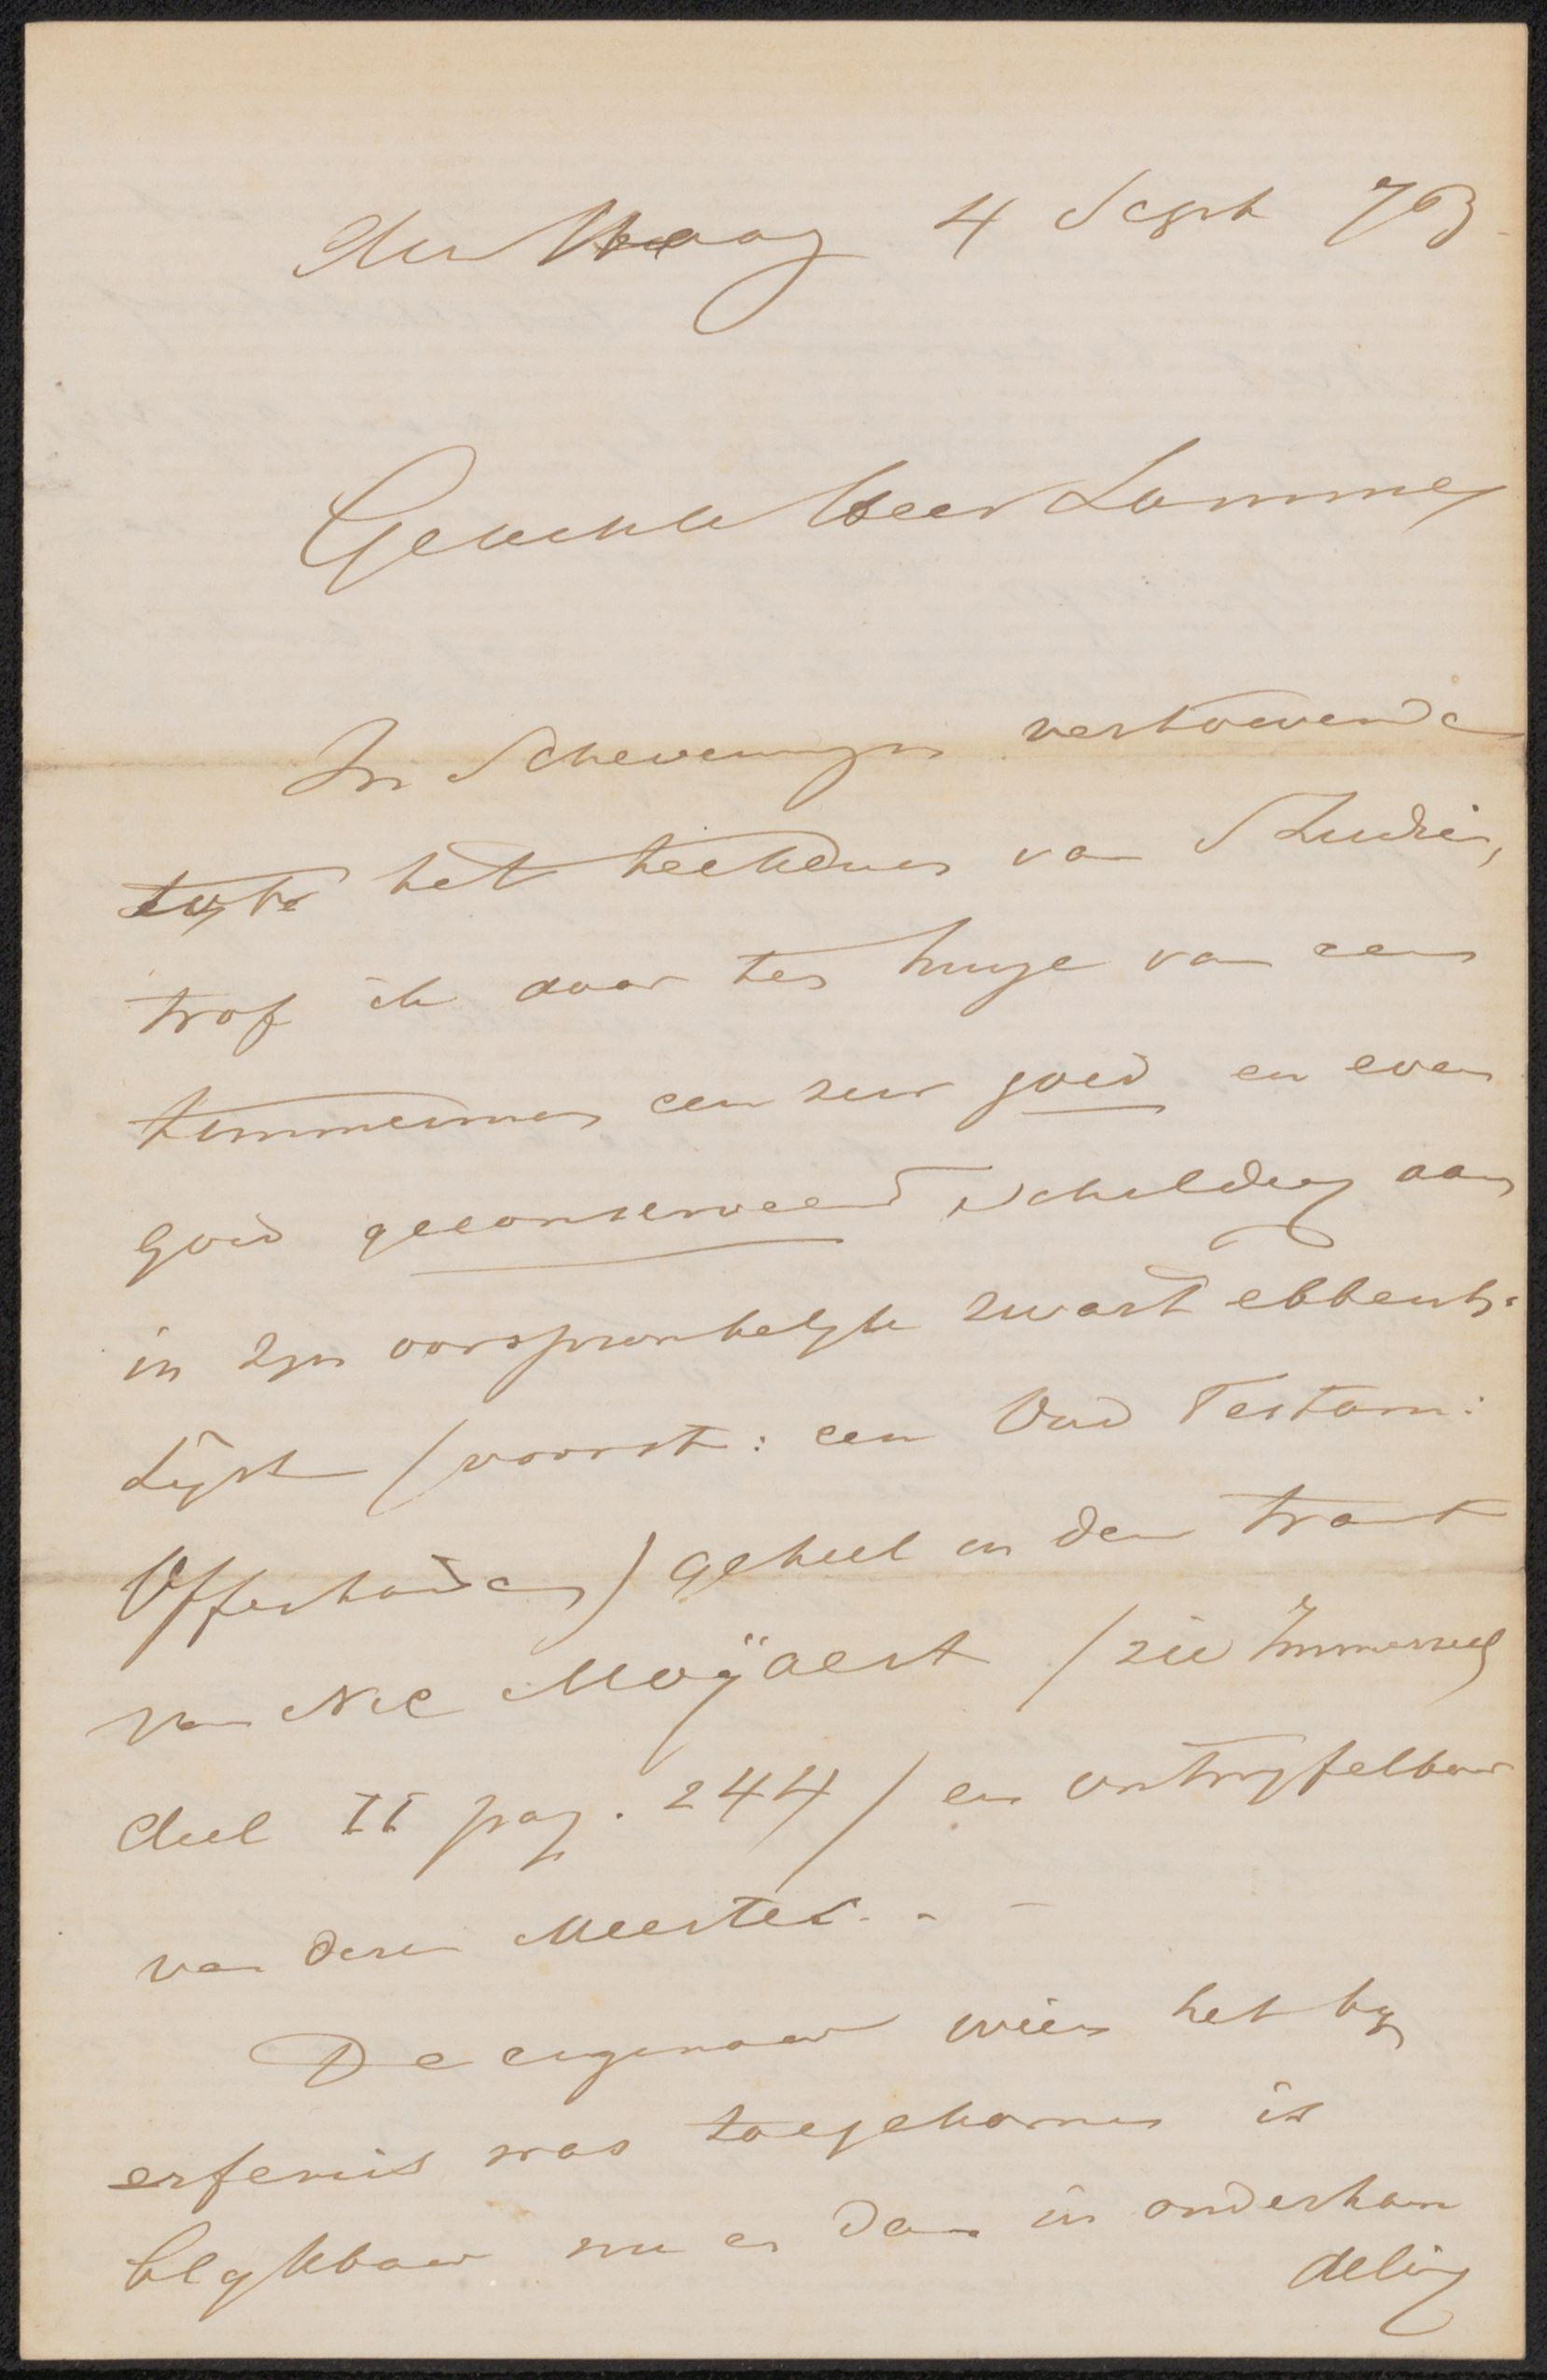 den Haag 4 Sept 73
Geachte Heer Lamme
In Scheveningen vertoevende
tijdens het teekenen van Studien,
trof ik daar ten huize van een
timmerman een zeer goed en even
goed geconserveerd schilderij aan
in zijn oorspronkelijke zwart ebbenh:
Lijst (voorst: een Oud Testam:
Offerhande) geheel in den trant
van Nic Moÿaert (zie Immerzeel
deel II pag. 244) en ontwijfelbaar
van dezen Meester. - -
De eigenaar wien het bij
erfenis was toegekomen is
blijkbaar nu en dan in onderhan
deling